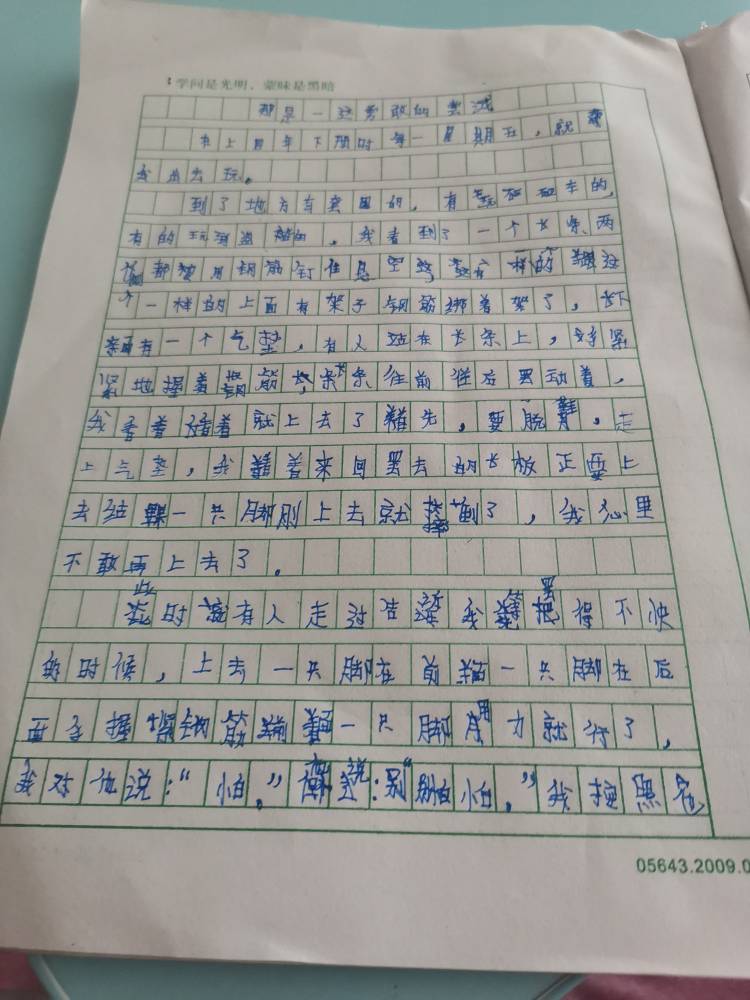 学问是光明，蒙昧是黑暗
那是一次勇敢的尝试
在上四年下期时每一星期五，就带
我出去玩。
到了地方有卖的，有车的，
有的玩盗船的，我看到了一个长条，两
都被用钢筋钉住悬空
一样的上面有架子钢筋绑着架了，长下
面有一个气垫，有人站在长条上，好紧
紧地握着钢筋，长条往前往后罢动着，
我看着就上去了首先，要脱鞋，走
上气垫，我看着来回罢去的长板正要上
去结果一只脚刚上去就摔倒了，我心里
不敢再上去了。
此时就有人走过告诉我等罢得不快
的时候，上去一只脚在前面一只脚在后
面手握紧钢筋前面一只脚用力就行了，
我对他说：“怕。”说：“别怕。”我按照他
05643.2009.0